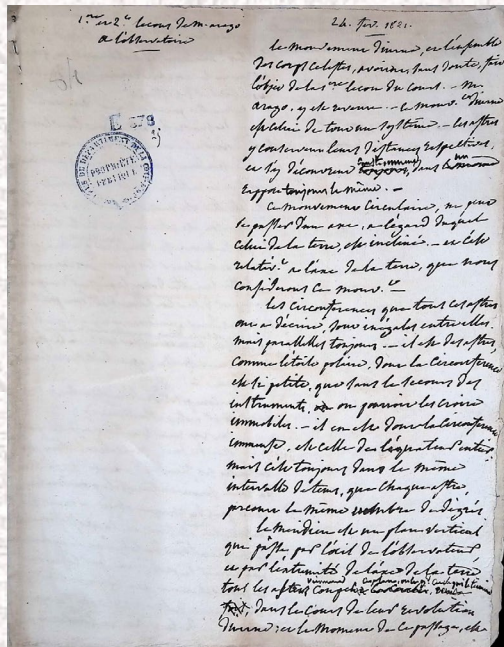 1re et 2e lecons de m. arago
a l'observatoire
24. fév. 1821.
E 378
le mouvement diurne, et l'ensemble
des corps celestes, avoient sans doute, fait
l'objet de la 1re lecon du cours. — Mr.
arago, y est revenu. — ce mouv.t diurne
est celui de tout un systême. — les astres
y conservent leurs distances respectives,
et s'y découvrent dans
rapport toujours le même. —
Ce mouvement circulaire, ne peut
se passer d'un axe, a l'égard duquel
celui de la terre, est incliné. — et c'est
relativ.t a l'axe de la terre, que nous
considerons ce mouv.t —
les circonferences que tous ces astres
ont a décrire, sont inégales entr'elles
mais paralleles toujours. — il est des astres
comme l'étoile polaire, dont la circonference
est si petite, que sans le secours des
instruments, on pourroit les croire
immobiles. — il en est dont la circonference
immense, est celle de l'équateur entier
mais c'est toujours dans le même
intervalle de tems, que chaque astre,
parcourt le même nombre de dégrés
le meridien est un plan vertical
qui passe par l'oeil de l'observateur
et par l'extremité de l'axe de la terre
tous les astres
dans le cours de leur revolution
diurne; et le moment de ce passage, est